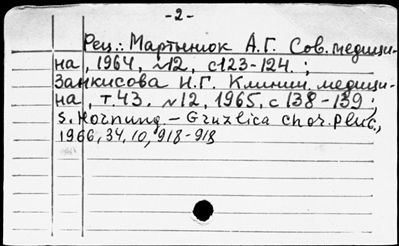 -2-
Рец.: Мартынюк А.Г. Сов. медици-
на, 1964, №12, с123-124. ;
Занкисова Н.Г. Клинич. медици-
на, т.43, №12, 1965, с 138-139 ;
S. Hornung. - Gruzlica Chor. Pluc.,
1966, 34, 10, 918-918